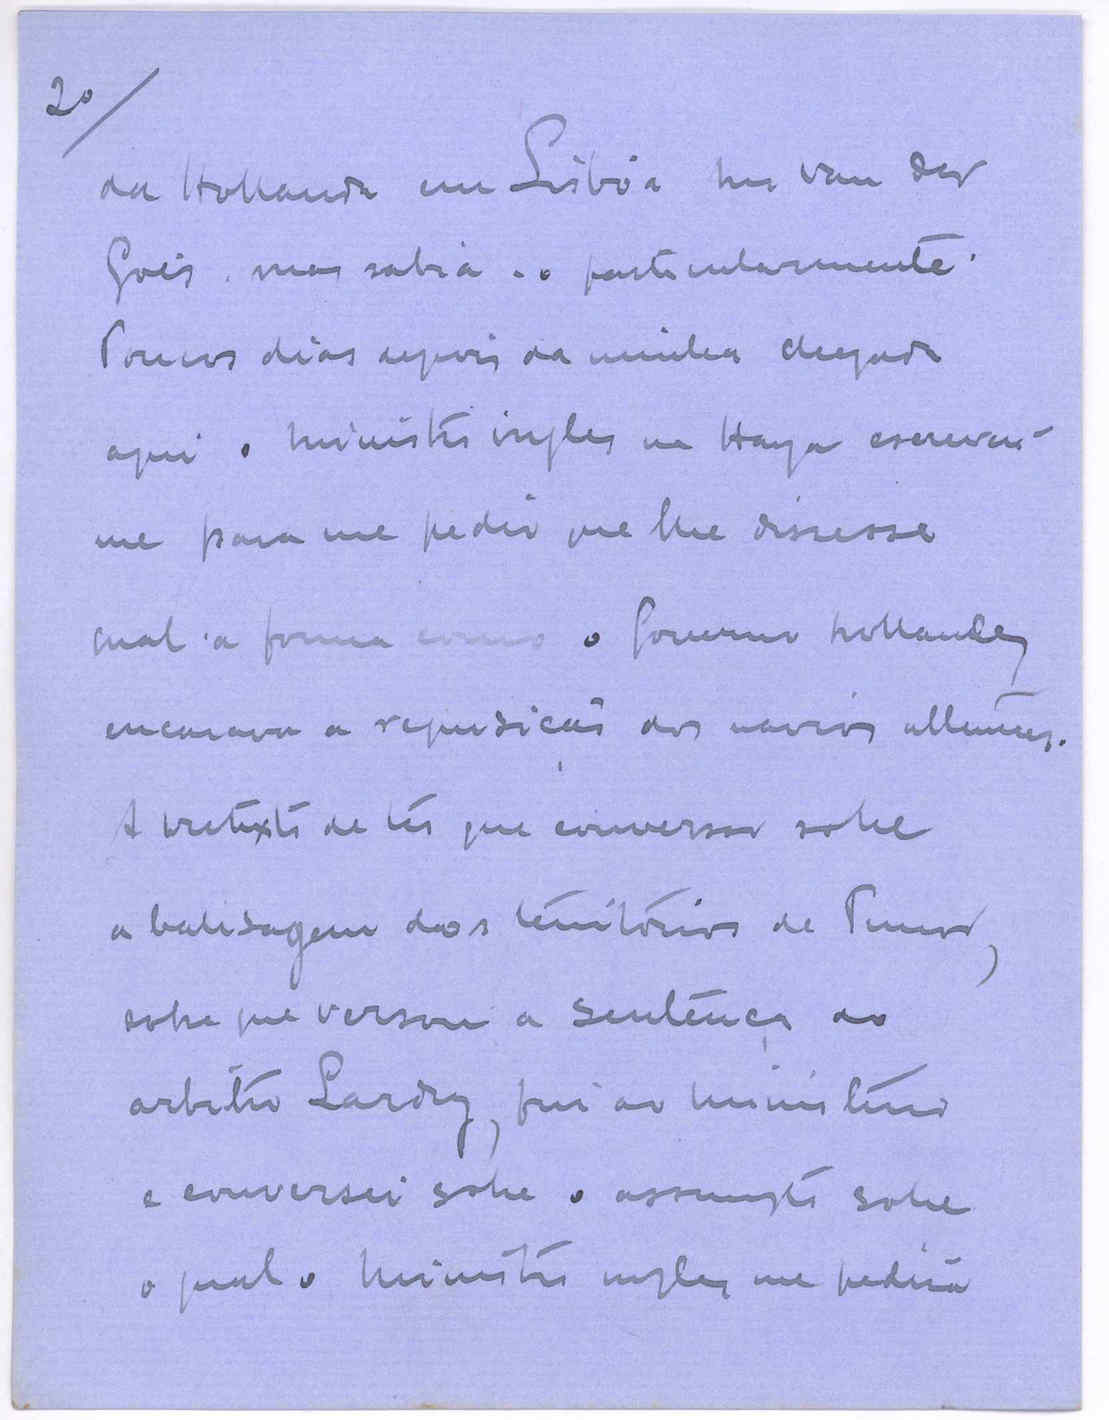 20/
da Hollanda em Lisbôa Mr van der
Goes. mas sabia-o particularmente.
Poucos dias depois da minha chegada
aqui o Ministro inglez na Haya escreveu-
me para me pedir que lhe dissesse
qual a forma como o Governo hollandez
encarava a requisição dos navios allemães.
A pretexto de ter que conversar sobre
a balisagem dos territórios de Timor,
sobre que versou a sentença do
arbitro Lardy, fui ao ministerio
e conversei sobre o assumpto sobre
o qual o Ministro inglez me pedira